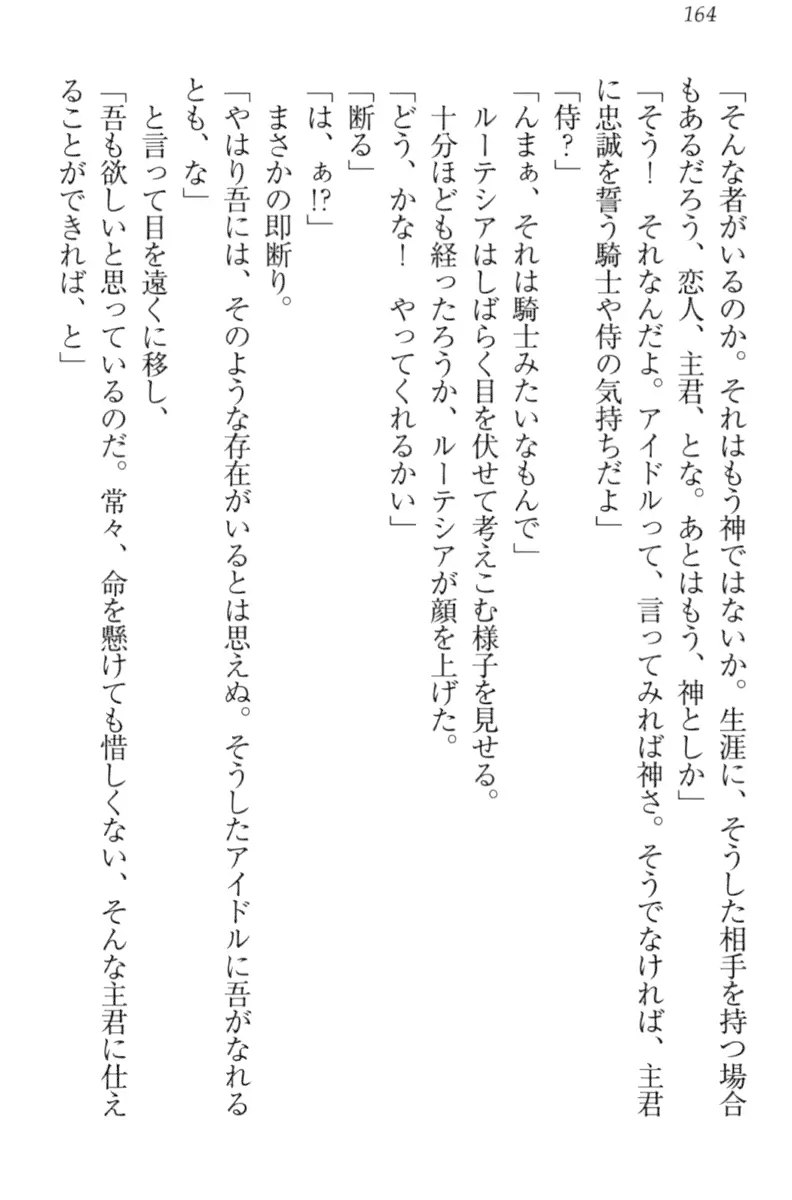 164
「そんな者がいるのか。それはもう神ではないか。生涯に、そうした相手を持つ場合
もあるだろう、恋人、主君、とな。あとはもう、神としか」
「そう！　それなんだよ。アイドルって、言ってみれば神さ。そうでなければ、主君
に忠誠を誓う騎士や侍の気持ちだよ」
「侍？」
「んまぁ、それは騎士みたいなもんで」
　ルーテシアはしばらく目を伏せて考えこむ様子を見せる。
　十分ほども経ったろうか、ルーテシアが顔を上げた。
「どう、かな！　やってくれるかい」
「断る」
「は、ぁ!?」
　まさかの即断り。
「やはり吾には、そのような存在がいるとは思えぬ。そうしたアイドルに吾がなれる
とも、な」
　と言って目を遠くに移し、
「吾も欲しいと思っているのだ。常々、命を懸けても惜しくない、そんな主君に仕え
ることができれば、と」